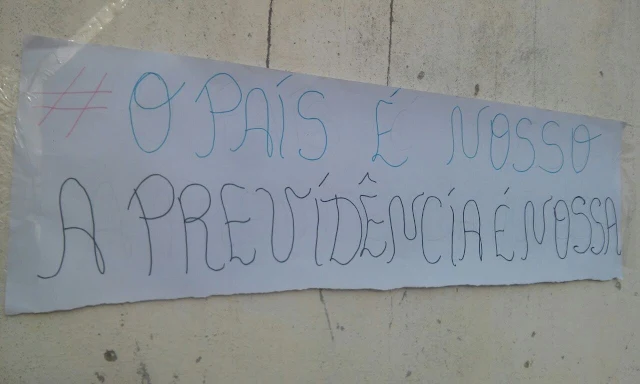 # O PAÍS É NOSSO
A PREVÍDÊNCÍA É NOSSA